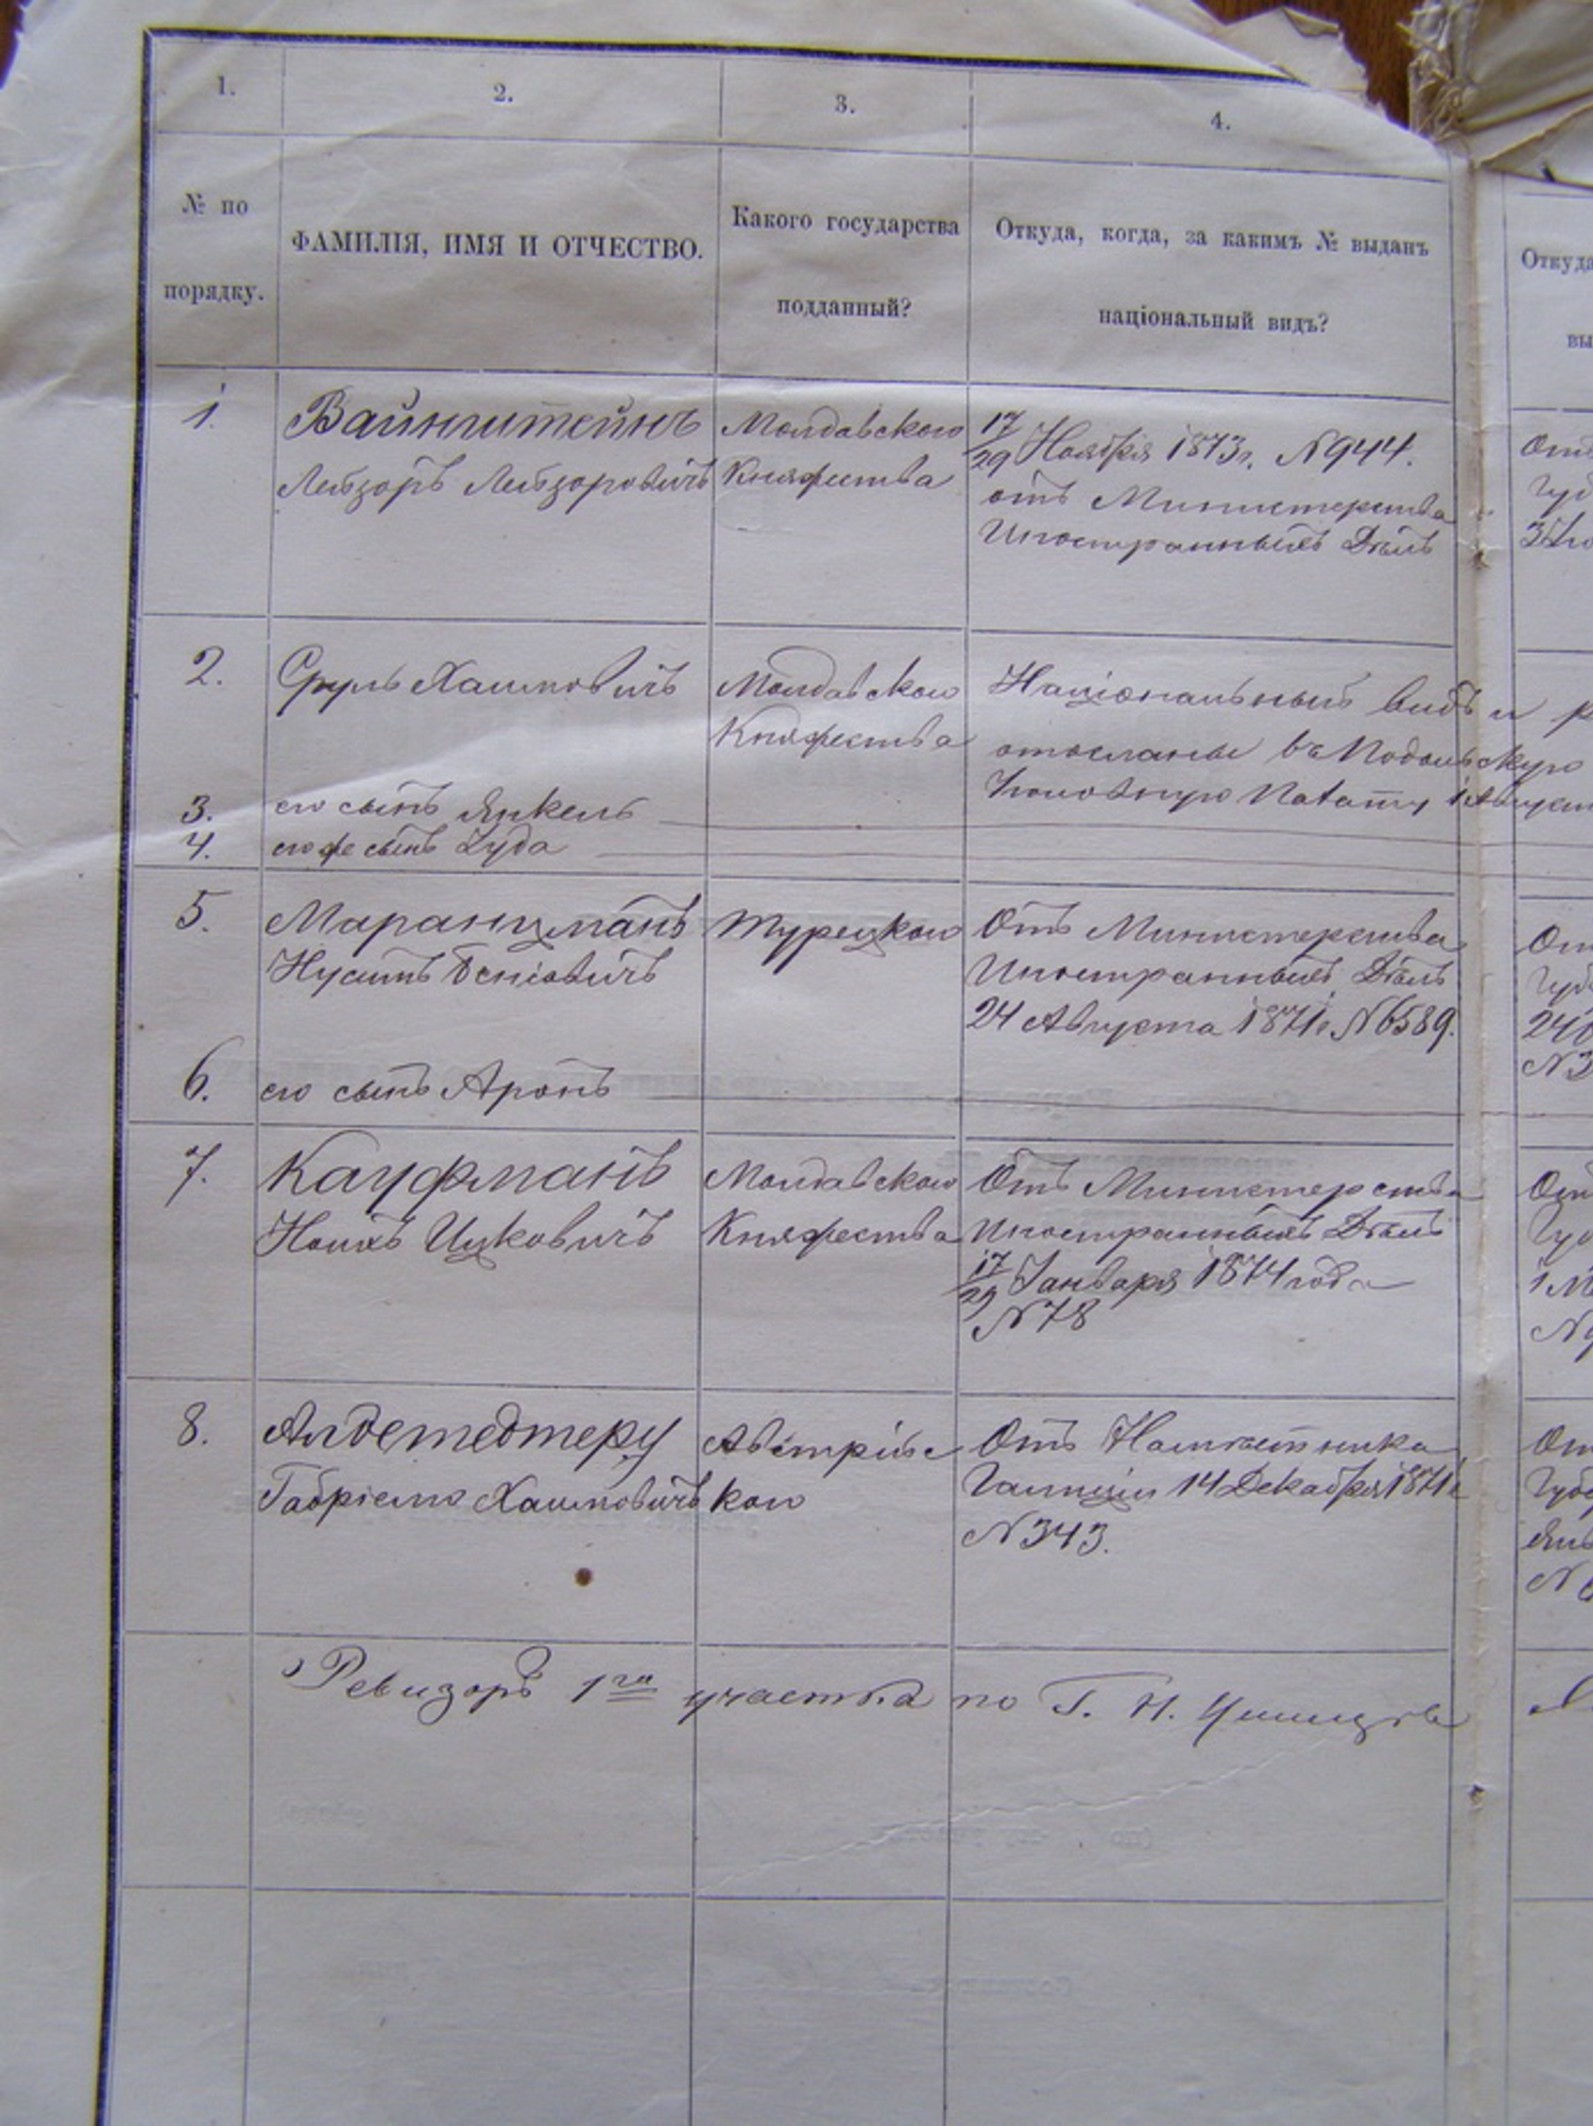 1. 2. 3. 4.
№ по порядку.
ФАМИЛІЯ, ИМЯ И ОТЧЕСТВО.
Какого государства
подданный?
Откуда, когда, за какимъ № выданъ
національный видъ?
Откуда
вы
1.
Вайнштейнъ
Лейзоръ Лейзоровичъ
Молдавскаго
Княжества
17/29 Ноября 1873 г. N 944.
отъ Министерства
Иностранныхъ Дѣлъ
2.
Сруль Хаимовичъ
Молдавскаго
Княжества
Національный видъ и
отосланы въ Подольскую
Казенную Палату 1
3. его сынъ Янкель
4. его же сынъ Іуда
5.
Маранцманъ
Нусинъ Беніовичъ
Турецкаго
Отъ Министерства
Иностранныхъ Дѣлъ
24 Августа 1871 г. N 6589.
6. его сынъ Аронъ
7.
Кауфманъ
Ицковичъ
Молдавскаго
Княжества
Отъ Министерства
Иностранныхъ Дѣлъ
17/29 Января 1874 года
N 78
8.
Габріель Хаимовичъ
Австрійс
каго
Отъ Намѣстника
Галиціи 14 Декабря 1871 г.
N 343.
Ревизоръ 1го участка по Г. Н.